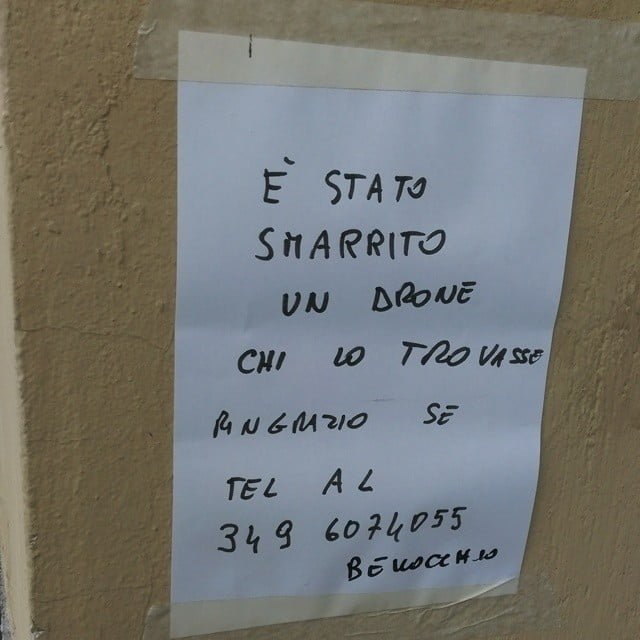 È STATO
SMARRITO
UN DRONE
CHI LO TROVASSE
RINGRAZIO SE
TEL AL
349 6074055